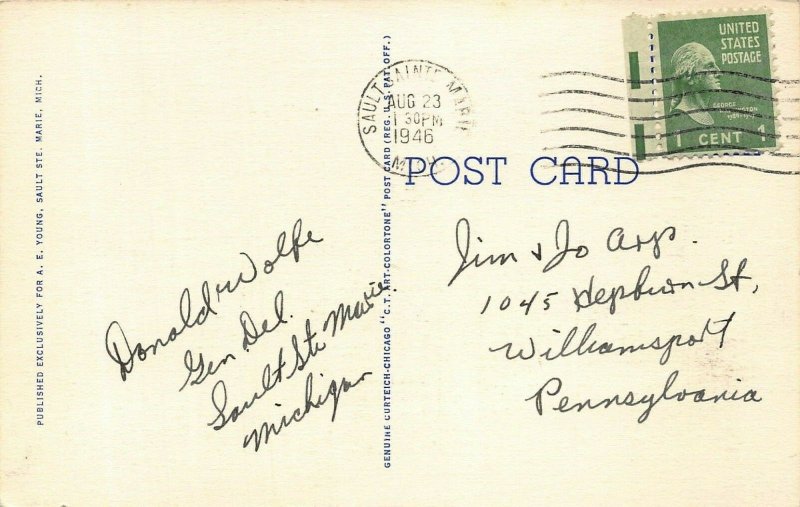 PUBLISHED EXCLUSIVELY FOR A. E. YOUNG, SAULT STE. MARIE, MICH.
Donald Wolfe
Gen. Del.
Sault Ste Marie,
Michigan
GENUINE CURTEICH-CHICAGO "C.T. ART-COLORTONE" POST CARD (REG. U.S. PAT. OFF.)
SAULT SAINTE MARIE
AUG 23
1 30PM
1946
MICH.
UNITED
STATES
POSTAGE
GEORGE
WASHINGTON
1 CENT 1
POST CARD
Jim & Jo Arp.
1045 Hepburn St,
Williamsport
Pennsylvania